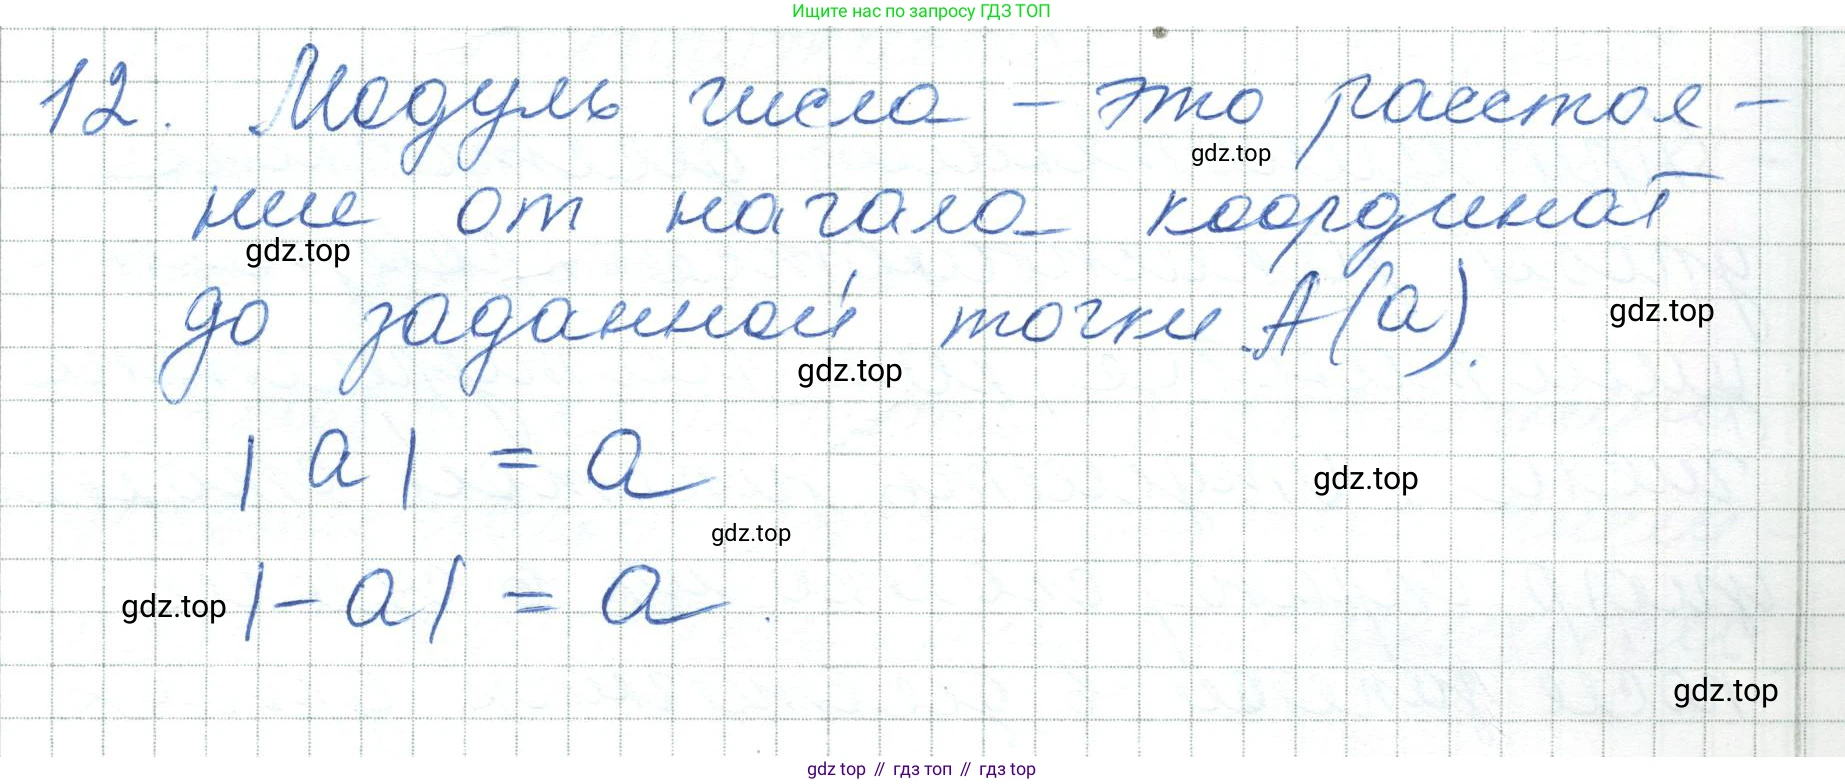 Ищите нас по запросу ГДЗ ТОП
12. Модуль числа – это расстоя-
gdz.top
ние от начала координат
gdz.top
до заданной точки A(a).
gdz.top
gdz.top
|a| = a
gdz.top
gdz.top
|-a| = a.
gdz.top
gdz.top
gdz top // гдз топ // гдз top